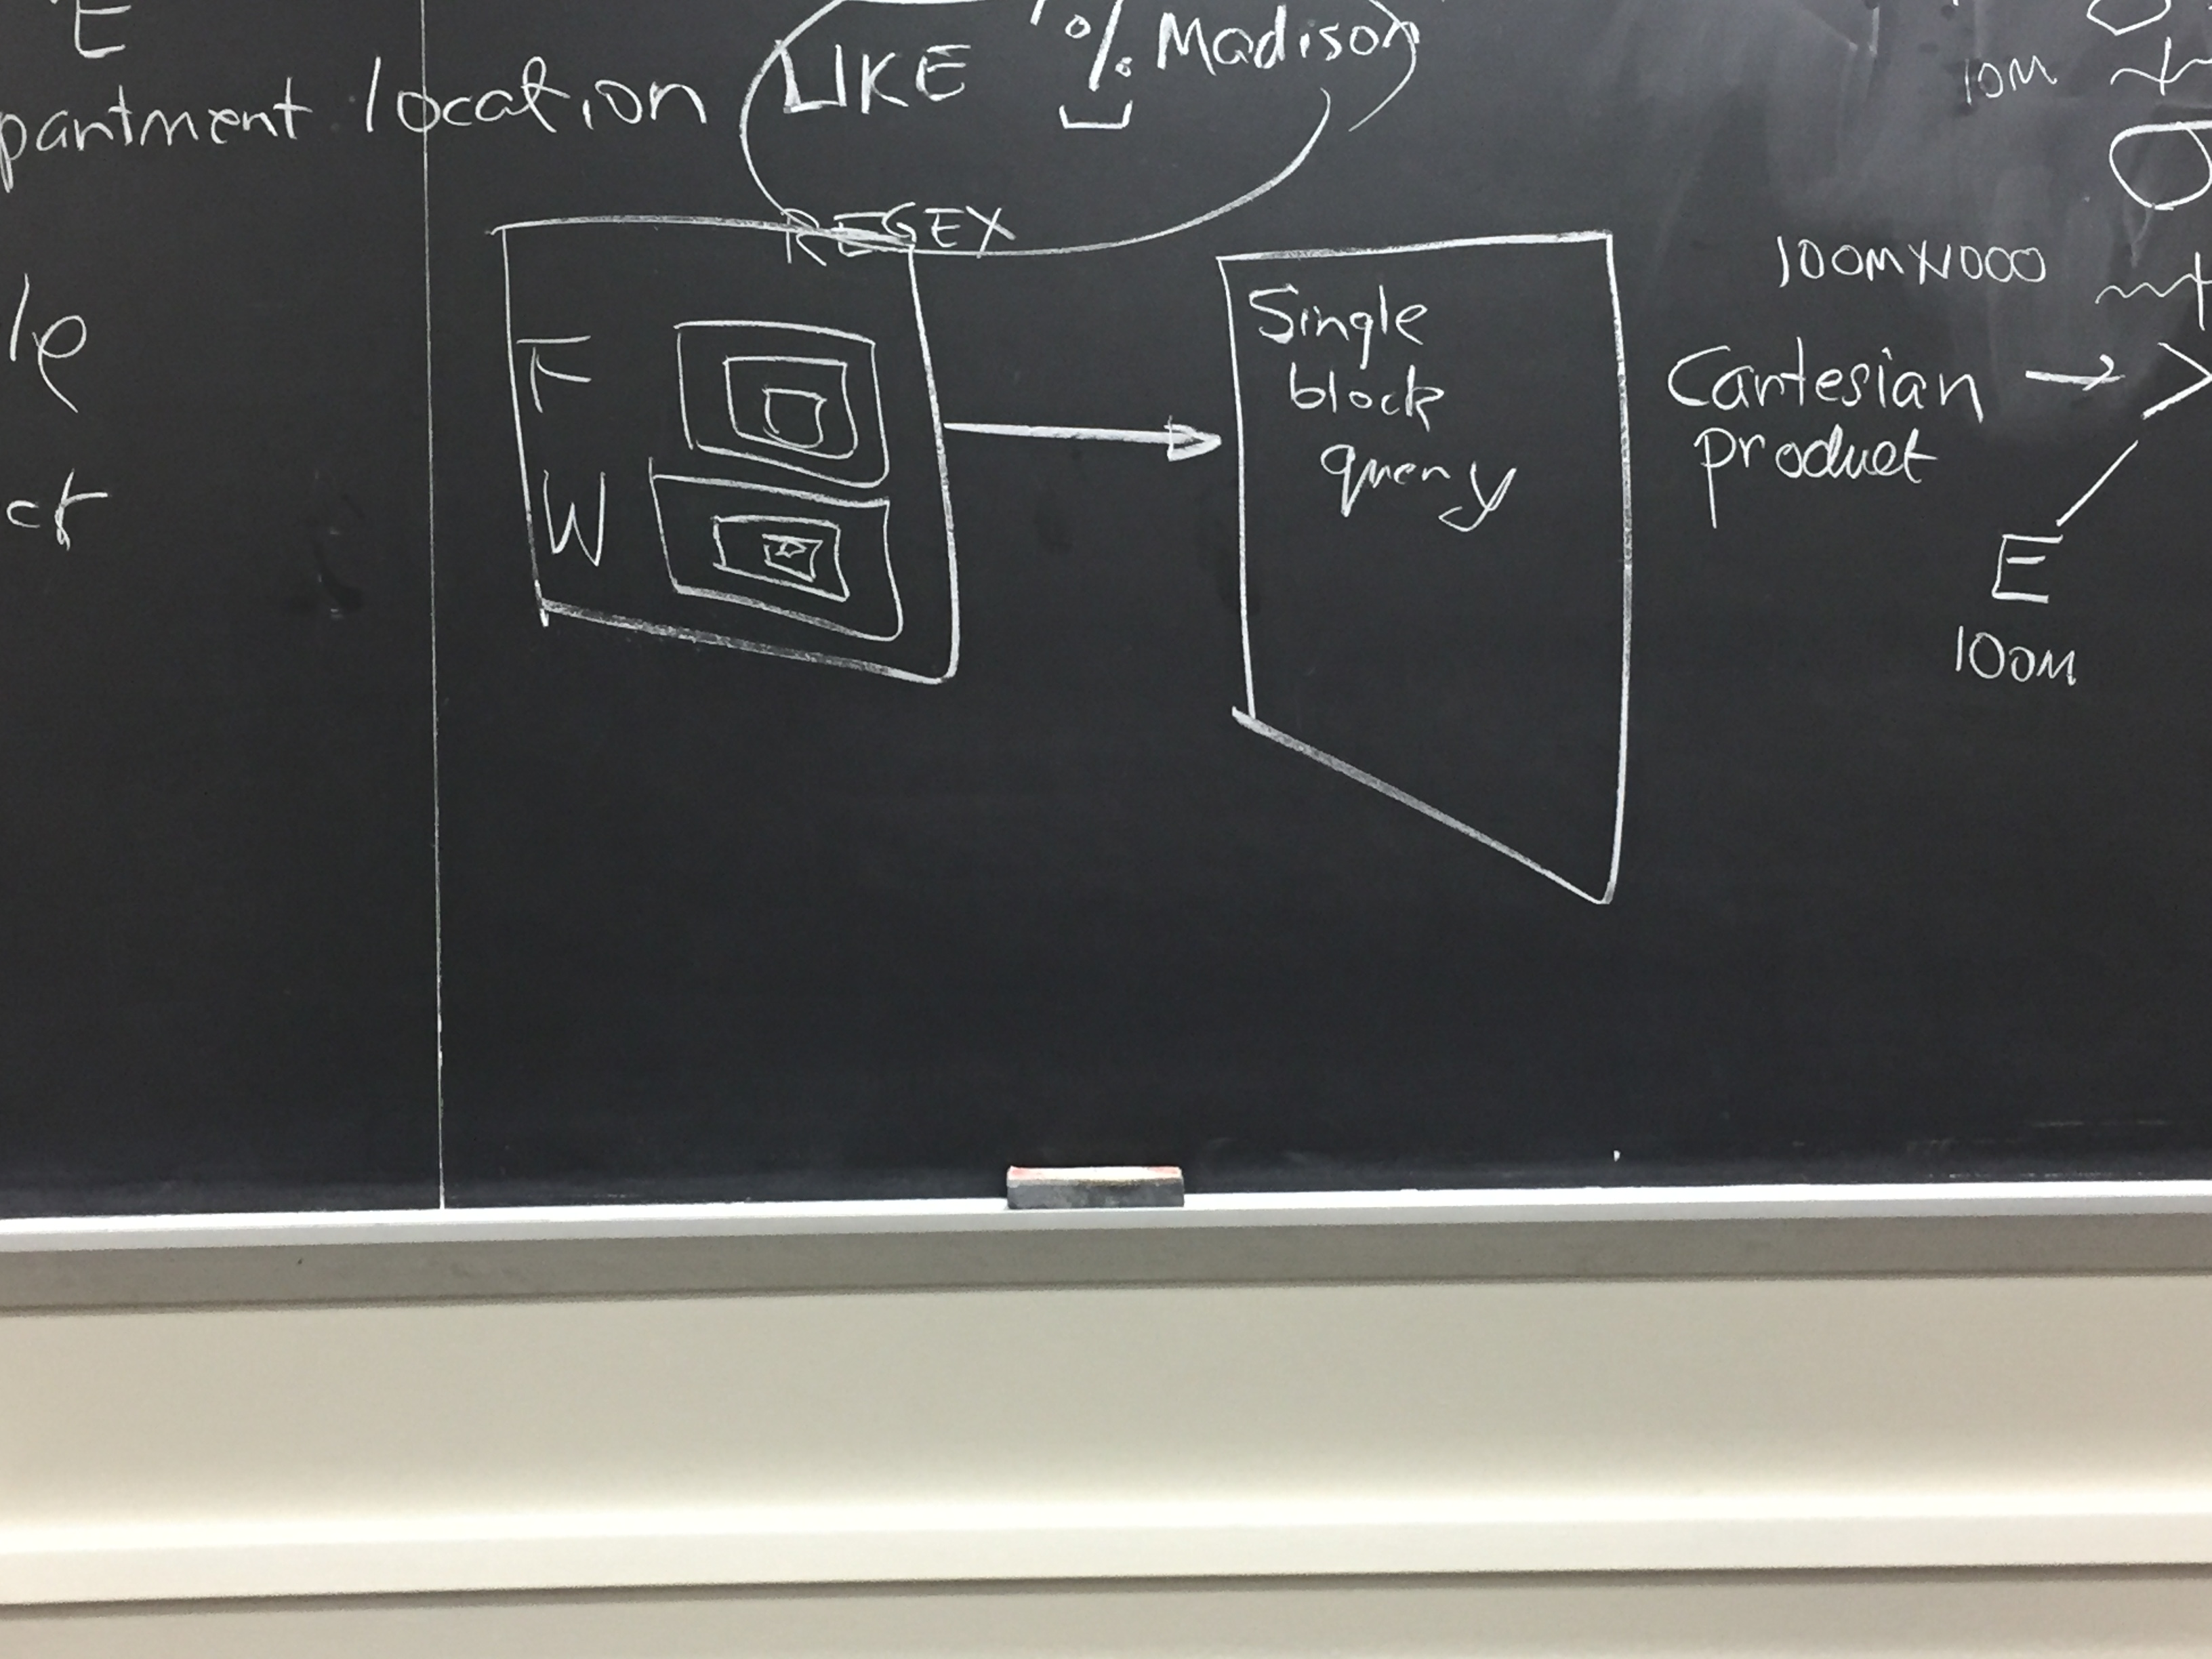 E
partment location
LIKE '%Madison
REGEX
le
ct
F
W
Single
block
query
10M
100M×1000
Cartesian →
product
E
100M